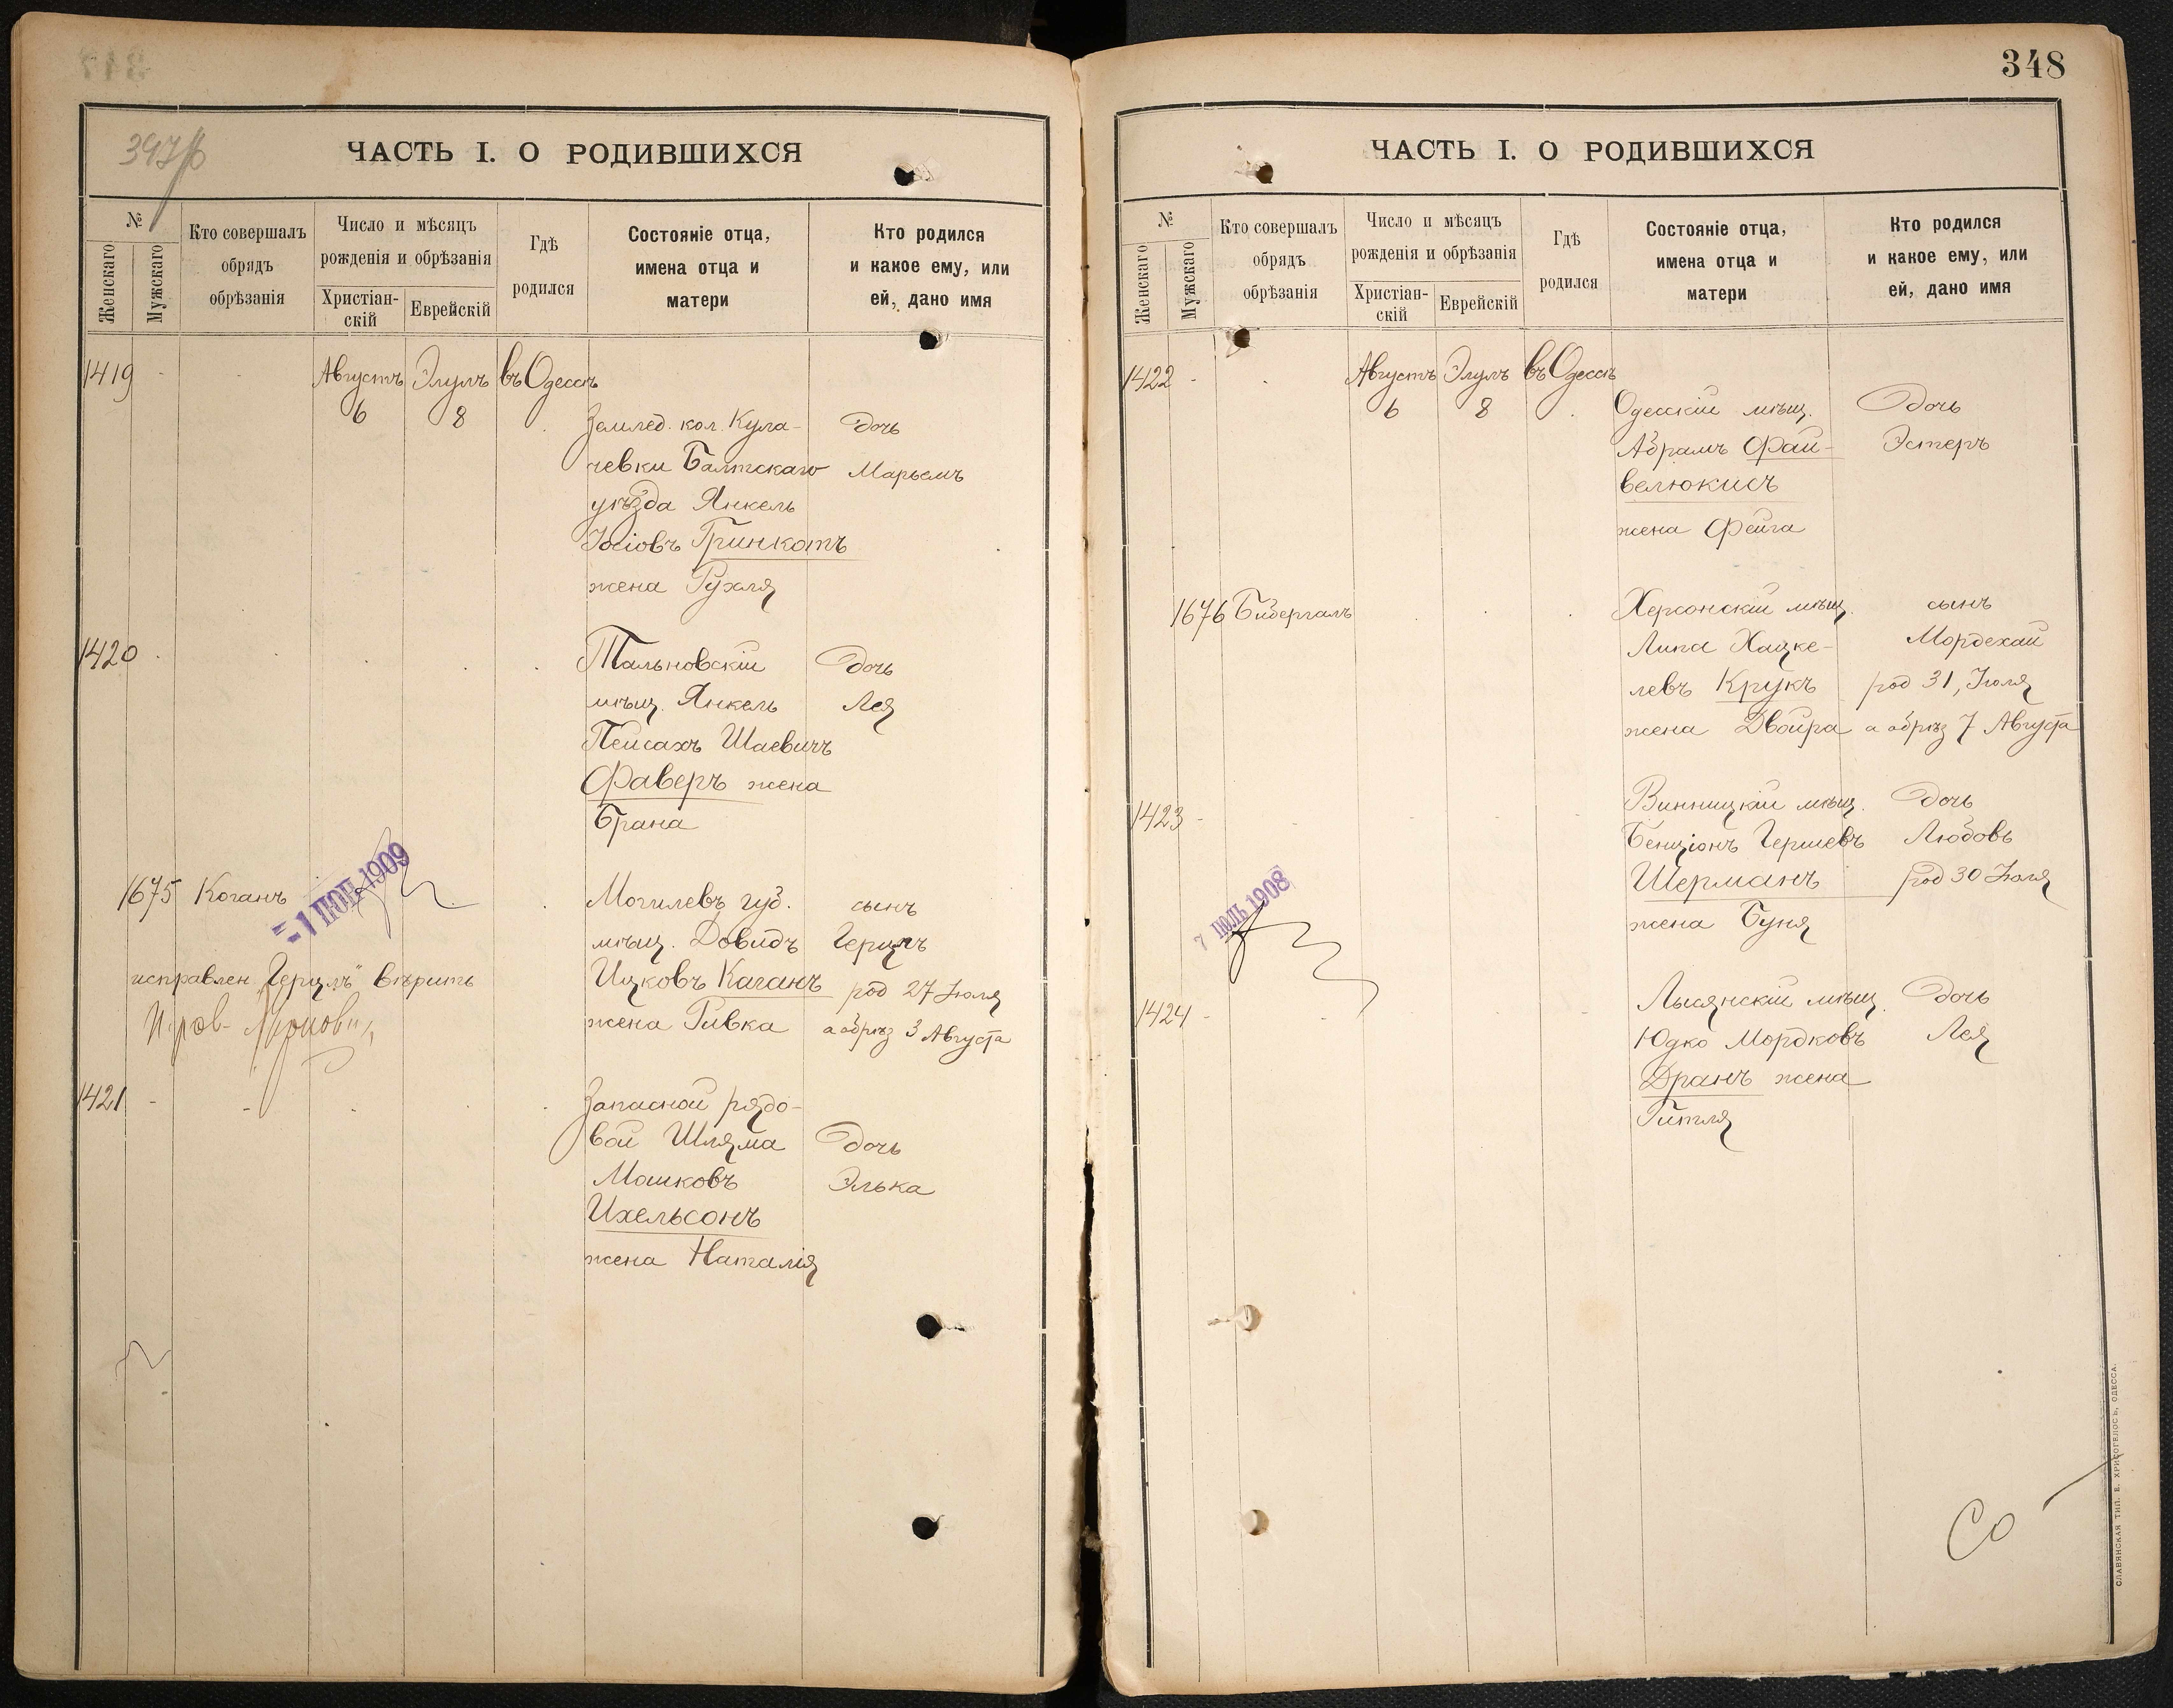 ЧАСТЬ I. О РОДИВШИХСЯ
№
Женскаго
Мужскаго
Кто совершалъ
обрядъ
обрѣзанія
Число и мѣсяцъ
рожденія и обрѣзанія
Христіан-
скій
Еврейскій
Гдѣ
родился
Состояніе отца,
имена отца и
матери
Кто родился
и какое ему, или
ей, дано имя
1419
Августъ
6
Элулъ
8
въ Одессѣ
Землед. кол. Кула-
чевки Балтскаго
уѣзда Янкель
Іосіовъ Гринкотъ
жена Рухля
Дочь
Марьемъ
1420
Тальновскій
мѣщ. Янкель
Пейсахъ Шаевичъ
Фаверъ жена
Брана
Дочь
Лея
1675 Коганъ
1 ІЮН 1909
Могилевъ губ.
мѣщ. Довидъ
Ицковъ Каганъ
жена Ривка
сынъ
Герцль
род 27 Іюля
а обрѣз 3 Августа
исправлен „Герцлъ" вѣрить
1421
Запасной рядо-
вой Шлема
Мошковъ
Ихельсонъ
жена Наталія
Дочь
Элька
348
ЧАСТЬ I. О РОДИВШИХСЯ
№
Женскаго
Мужскаго
Кто совершалъ
обрядъ
обрѣзанія
Число и мѣсяцъ
рожденія и обрѣзанія
Христіан-
скій
Еврейскій
Гдѣ
родился
Состояніе отца,
имена отца и
матери
Кто родился
и какое ему, или
ей, дано имя
1422
Августъ
6
Элулъ
8
въ Одессѣ
Одесскій мѣщ.
Абрамъ Фай-
велюкисъ
жена Фейга
Дочь
Эстеръ
1676 Бибергалъ
Херсонскій мѣщ.
Липа Хацке-
левъ Крукъ
жена Двойра
сынъ
Мордехай
род 31, Іюля
а обрѣз 7 Августа
1423
7 ІЮЛЬ 1908
Винницкій мѣщ.
Бенціонъ Гершевъ
Шерманъ
жена Буня
Дочь
Любовь
род 30 Іюля
1424
Лысянскій мѣщ.
Юдко Мордковъ
Дранъ жена
Гитля
Дочь
Лея
СЛАВЯНСКАЯ ТИП. Е. ХРИСОГЕЛОСЪ, ОДЕССА.